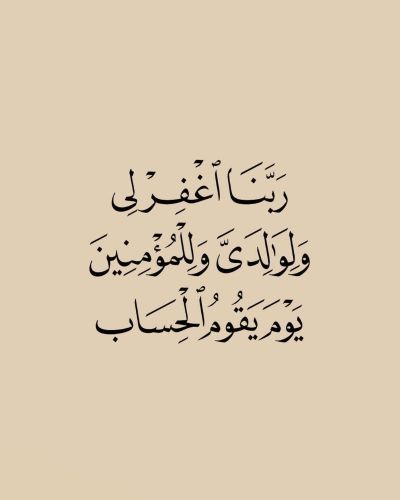 رَبَّنَا ٱغْفِرْ لِى
وَلِوَٰلِدَىَّ وَلِلْمُؤْمِنِينَ
يَوْمَ يَقُومُ ٱلْحِسَاب